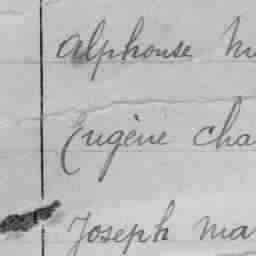 Alphonse
Eugène Cha
Joseph Ma